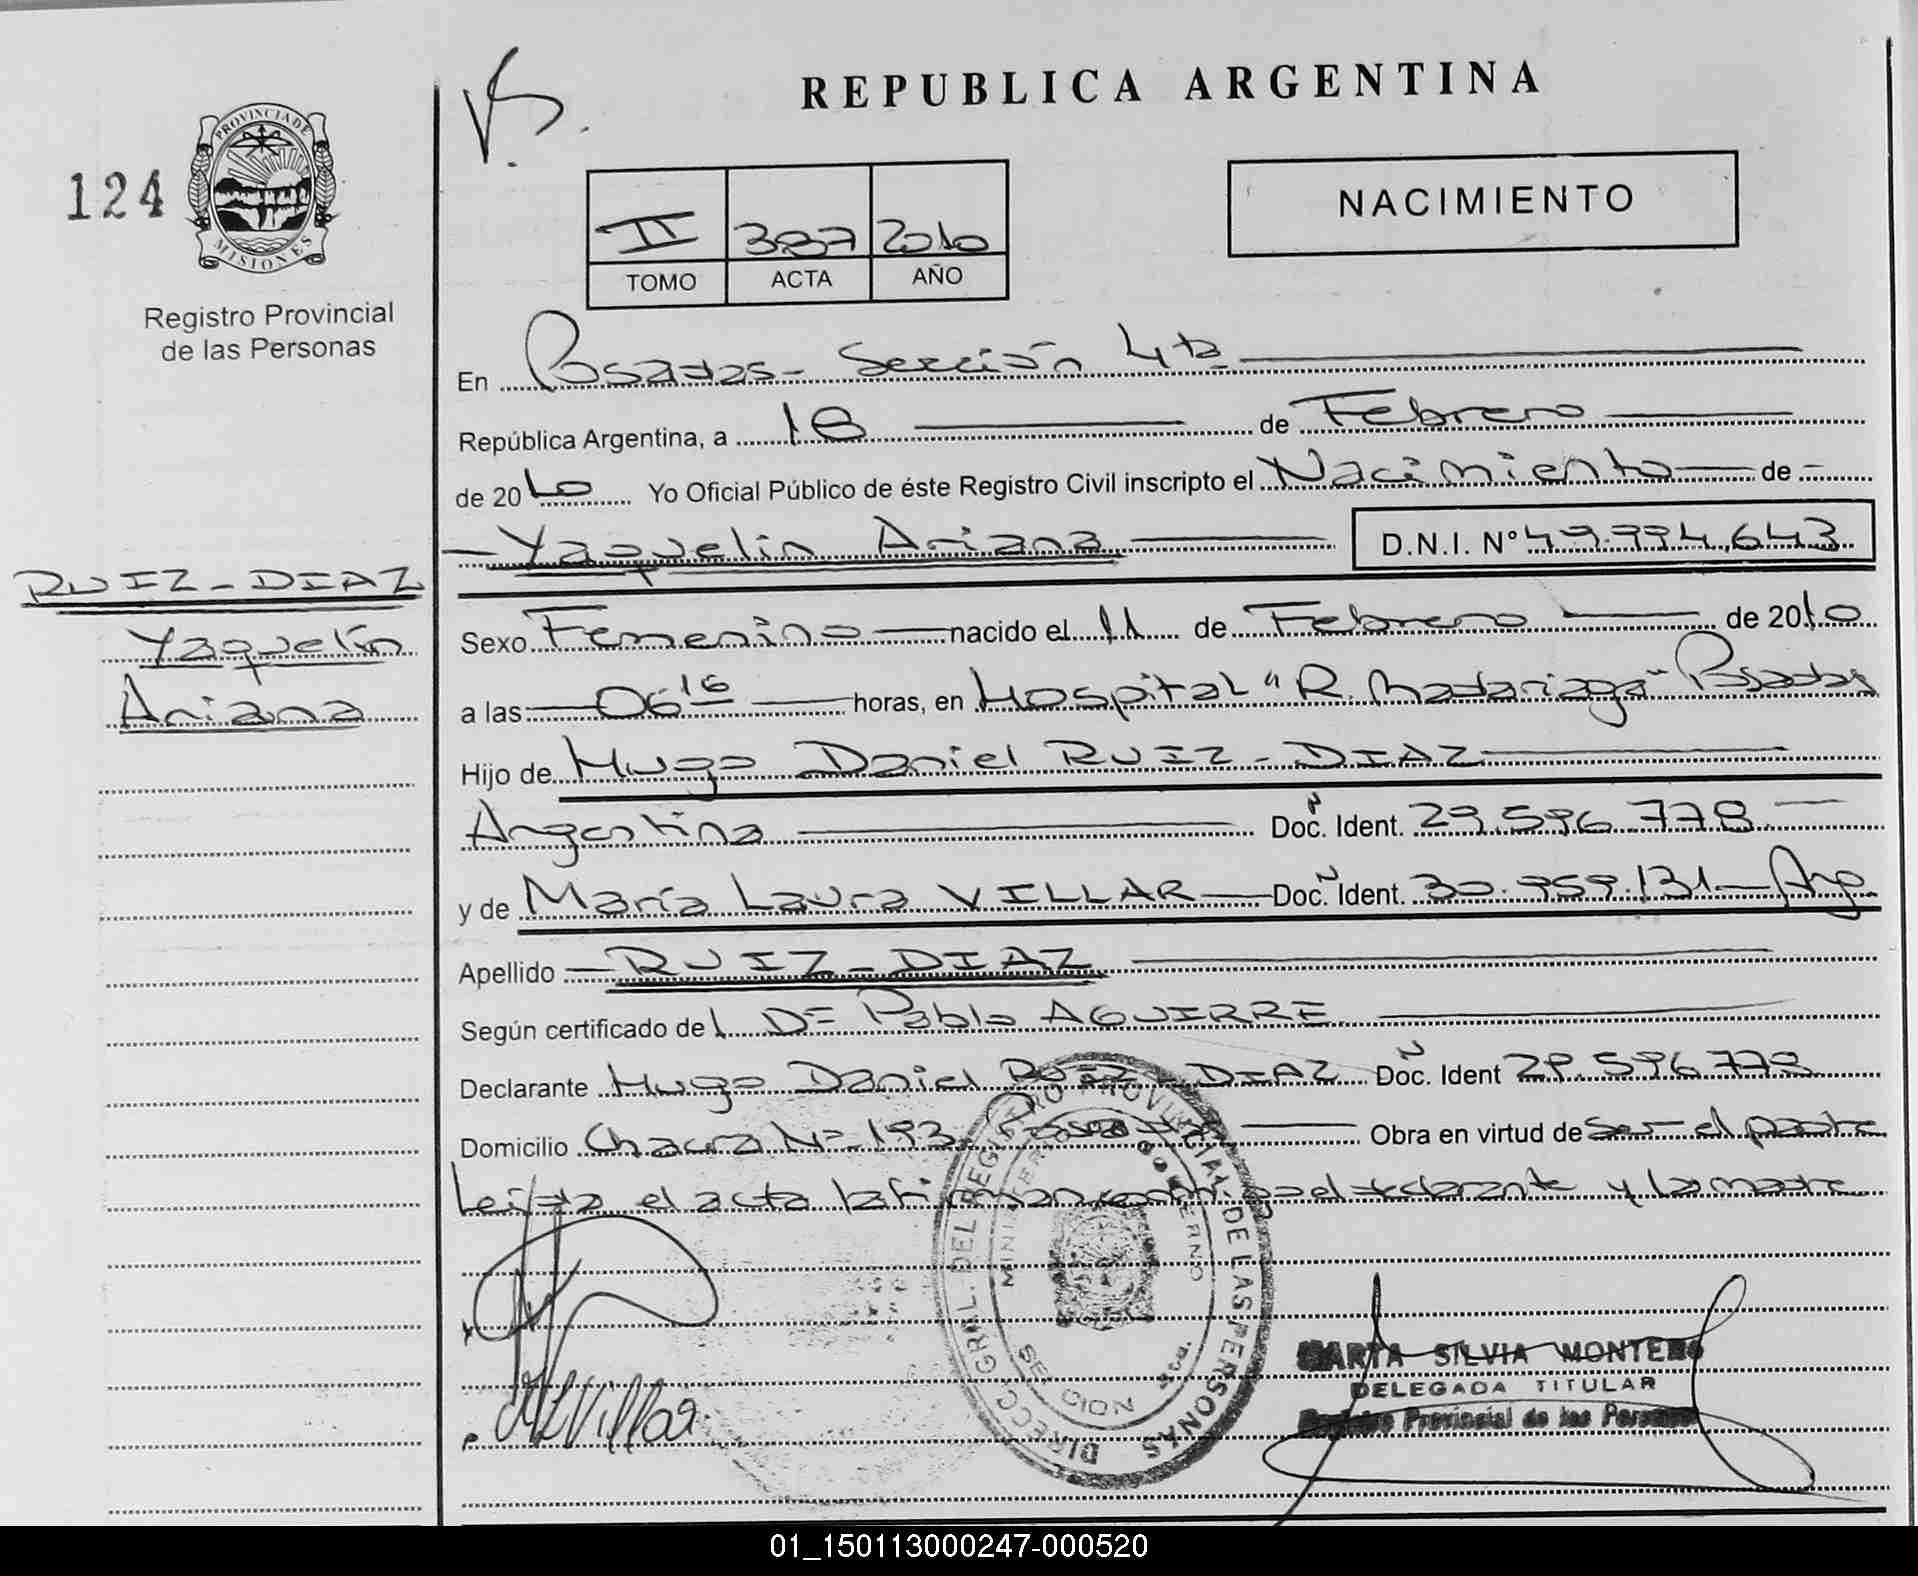 REPUBLICA ARGENTINA
124
PROVINCIA DE
MISIONES
Registro Provincial
de las Personas
NACIMIENTO
II 387 2010
TOMO ACTA AÑO
En Posadas - Sección 4ta
República Argentina, a 18 de Febrero
de 2010 Yo Oficial Público de éste Registro Civil inscripto el Nacimiento de
Yaquelin Ariana D.N.I. Nº 49.994.643
RUIZ-DIAZ
Yaquelin
Ariana
Sexo Femenino nacido el 11 de Febrero de 2010
a las 06 16 horas, en Hospital "R. Madariaga" Posadas
Hijo de Hugo Daniel RUIZ-DIAZ
Argentina Doc. Ident. 29.596.778
y de María Laura VILLAR Doc. Ident. 30.959.131 - Arg.
Apellido RUIZ-DIAZ
Según certificado del Dr Pablo AGUIRRE
Declarante Hugo Daniel RUIZ-DIAZ Doc. Ident 29.596.778
Domicilio Chacra Nº 193, Posadas Obra en virtud de ser el padre
Leída el acta la firman conmigo el declarante y la madre
DIRECC. GRAL. DEL REGISTRO PROVINCIAL DE LAS PERSONAS
MINISTERIO GOBIERNO
SECCION 4ta.
Villar
MARTA SILVIA MONTERO
DELEGADA TITULAR
Registro Provincial de las Personas
01_150113000247-000520